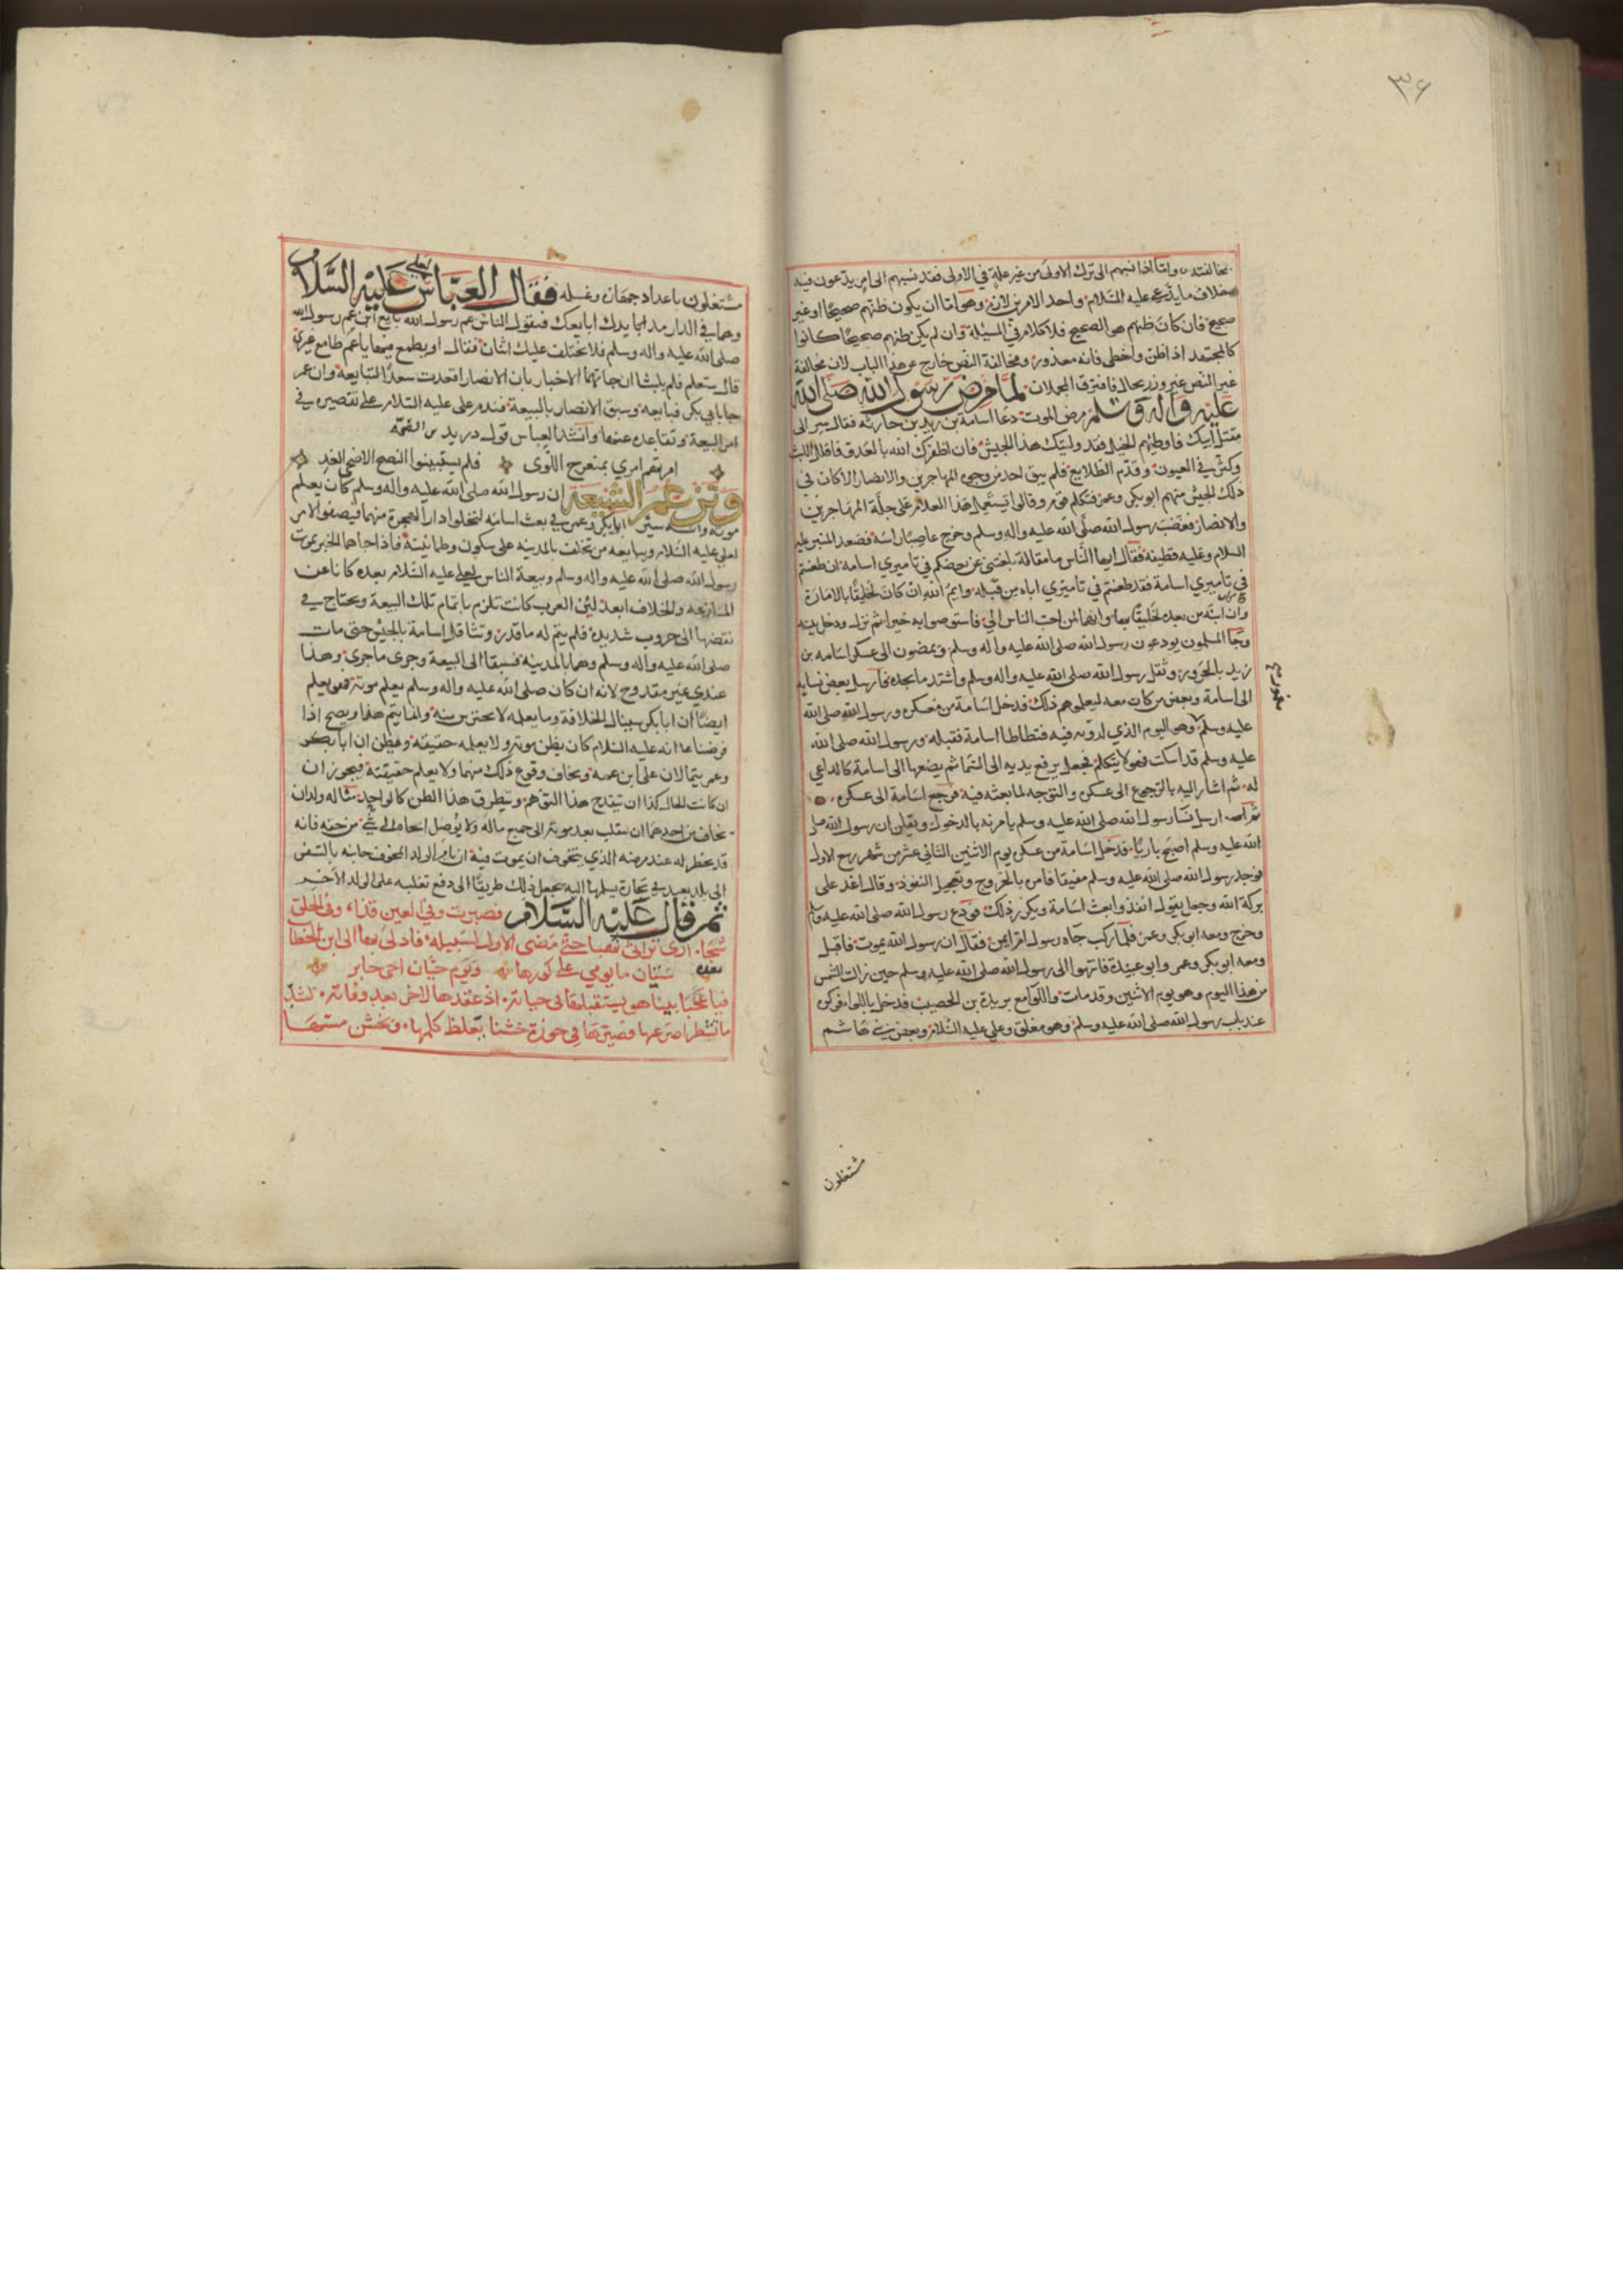 ٣٦
مخالفته، واما اذا نسبهم الى ترك الاولى من غير علة في الاولى فقد نسبهم الى امر يدعون فيه
خلاف ما يدعي عليه السلام، واحد الامرين لازم وهو اما ان يكون ظنهم صحيحا او غير
صحيح فان كان ظنهم هو الصحيح فلا كلام في المسئلة وان لم يكن ظنهم صحيحا كانوا
كالمجتهد اذا ظن واخطى فانه معذور، ومخالفة النص خارج عن هذا الباب لان مخالفة
غير النص غير وزر بحال فافترق المحملان، لما مرض رسول الله صلى الله
عليه واله وسلم مرض الموت دعا اسامة بن زيد بن حارثة فقال سر الى
مقتل ابيك فاوطئهم الخيل فقد وليتك هذا الجيش فان اظفرك الله بالعدو فاقلل اللبث
وكثر في العيون، وقدم الطلايع فلم يبق احد من وجوه المهاجرين والانصار الا كان في
ذلك الجيش منهم ابو بكر وعمر فتكلم قوم وقالوا يستعمل هذا الغلام على جلة المهاجرين
والانصار فغضب رسول الله صلى الله عليه واله وسلم وخرج عاصبا راسه فصعد المنبر عليه
السلام وعليه قطيفة فقال ايها الناس ما مقالة بلغتني عن بعضكم في تاميري اسامة ان طعنتم
في تاميري اسامة فقد طعنتم في تاميري اباه من قبله وايم الله ان كان لخليقا بالامارة
وان ابنه من بعده لخليق بها وانهما لمن احب الناس الي فاستوصوا به خيرا ثم نزل ودخل بيته
وجا المسلمون يودعون رسول الله صلى الله عليه واله وسلم ويمضون الى عسكر اسامه بن
زيد بالجرف، وثقل رسول الله صلى الله عليه واله وسلم واشتد ما يجده فارسل بعض نسايه
الى اسامة وبعض من كان معه ليعلموهم ذلك فدخل اسامة من معسكره ورسول الله صلى الله
عليه وسلم وهو اليوم الذي لدوه فيه فتطاطا اسامة فقبله، ورسول الله صلى الله
عليه وسلم قد اسكت فهو لا يتكلم فجعل يرفع يديه الى السما ثم يضعها الى اسامة كالداعي
له، ثم اشار اليه بالرجوع الى عسكره والتوجه لما بعثه فيه، فرجع اسامة الى عسكره
ثم ارسل نسا رسول الله صلى الله عليه وسلم يامرنه بالدخول ويقلن ان رسول الله صلى
الله عليه وسلم اصبح باريا، فدخل اسامة من عسكره يوم الاثنين الثاني عشر من شهر ربيع الاول
فوجد رسول الله صلى الله عليه وسلم مفيقا فامره بالخروج وتعجيل النفوذ وقال اغد على
بركة الله وجعل يقول انفذوا بعث اسامة ويكرر ذلك فودع رسول الله صلى الله عليه وسلم
وخرج ومعه ابو بكر وعمر فلما ركب جاه رسول ام ايمن فقال ان رسول الله يموت فاقبل
ومعه ابو بكر وعمر وابو عبيدة فانتهوا الى رسول الله صلى الله عليه وسلم حين زالت الشمس
من هذا اليوم وهو يوم الاثنين وقد مات واللوا مع بريدة بن الحصيب فدخل باللواء فركزه
عند باب رسول الله صلى الله عليه وسلم وهو مغلق وعلي عليه السلام وبعض بني هاشم
مشتغلون
مشتغلون باعداد جهازه وغسله فقال العباس لعلي عليه السلام
وهما في الدار مد يدك ابايعك فيقول الناس عم رسول الله بايع ابن عم رسول الله
صلى الله عليه واله وسلم فلا يختلف عليك اثنان فقال او يطمع فيها يا عم طامع غيري
قال ستعلم فلم يلبثا ان جاتهما الاخبار بان الانصار اقعدت سعدا لتبايعه وان عمر
جا بابي بكر فبايعه وسبق الانصار بالبيعة فندم علي عليه السلام على تقصيره في
امر البيعة وتقاعده عنها وانشد العباس قول دريد بن الصمة
امرتهم امري بمنعرج اللوى فلم يستبينوا النصح الا ضحى الغد
وتزعم الشيعة ان رسول الله صلى الله عليه واله وسلم كان يعلم
موته وانه سير ابا بكر وعمر في بعث اسامة لتخلو دار الهجرة منهما فيصفو الامر
لعلي عليه السلام ويبايعه من تخلف بالمدينه على سكون وطمانينة فاذا جاهما الخبر بموت
رسول الله صلى الله عليه واله وسلم وبيعة الناس لعلي عليه السلام بعده كانا عن
المنازعه والخلاف ابعد لان العرب كانت تلتزم باتمام تلك البيعة ويحتاج في
نقضها الى حروب شديدة فلم يتم له ما قدر، وتثاقل اسامة بالجيش حتى مات
صلى الله عليه واله وسلم وهما بالمدينة فسبقا الى البيعة وجرى ما جرى وهذا
عندي غير مقدوح لانه ان كان صلى الله عليه واله وسلم يعلم موته فهو يعلم
ايضا ان ابا بكر سينال الخلافة وما يعلمه لا يحترس منه وانما يتم هذا ويصح اذا
فرضنا انه عليه السلام كان يظن موته ولا يعلمه حقيقة ويظن ان ابا بكر
وعمر يتمالان على ابن عمه ويخاف وقوع ذلك منهما ولا يعلم حقيقته فيجوز ان
ان كانت الحال كذا ان ينقدح هذا التوهم، ويتطرق هذا الظن كالواحد منا له ولدان
يخاف من احدهما ان يتغلب بعد موته الى جميع ماله ولا يوصل اخاه الى شيء من حقه فانه
قد يخطر له عند مرضه الذي يتخوف ان يموت فيه ان يامر الولد المخوف جانبه بالسفر
الى بلد بعيد في تجارة يسلمها اليه يجعل ذلك طريقا الى دفع تغلبه على الولد الاخر
ثم قال عليه السلام فصبرت وفي العين قذا، وفي الحلق
شجا، ارى تراثي نهبا حتى مضى الاول لسبيله، فادلى بها الى ابن الخطاب
بعده شتان ما يومي على كورها ويوم حيان اخي جابر
فيا عجبا بينا هو يستقيلها في حياته، اذ عقدها لاخر بعد وفاته، لشد
ما تشطرا ضرعيها فصيرها في حوزة خشنا يغلظ كلمها، ويخشن مسها